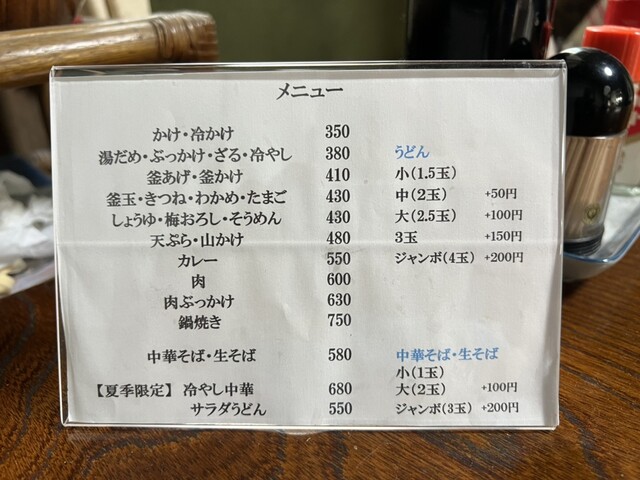 メニュー
かけ・冷かけ 350
湯だめ・ぶっかけ・ざる・冷やし 380 うどん
釜あげ・釜かけ 410 小(1.5玉)
釜玉・きつね・わかめ・たまご 430 中(2玉) +50円
しょうゆ・梅おろし・そうめん 430 大(2.5玉) +100円
天ぷら・山かけ 480 3玉 +150円
カレー 550 ジャンボ(4玉) +200円
肉 600
肉ぶっかけ 630
鍋焼き 750
中華そば・生そば 580 中華そば・生そば
小(1玉)
【夏季限定】 冷やし中華 680 大(2玉) +100円
サラダうどん 550 ジャンボ(3玉) +200円